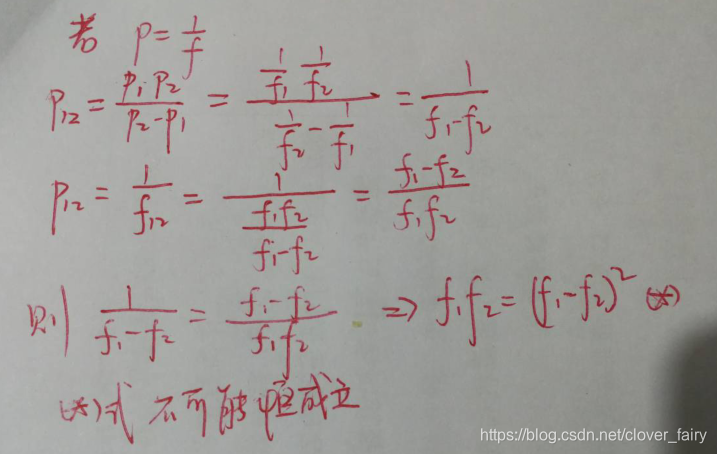 若 P = 1/f
P₁₂ = P₁·P₂/(P₂-P₁) = (1/f₁ 1/f₂)/(1/f₂ - 1/f₁) = 1/(f₁-f₂)
P₁₂ = 1/f₁₂ = 1/(f₁f₂/(f₁-f₂)) = (f₁-f₂)/(f₁f₂)
则 1/(f₁-f₂) = (f₁-f₂)/(f₁f₂) => f₁f₂ = (f₁-f₂)² (*)
(*)式 不可能恒成立
https://blog.csdn.net/clover_fairy